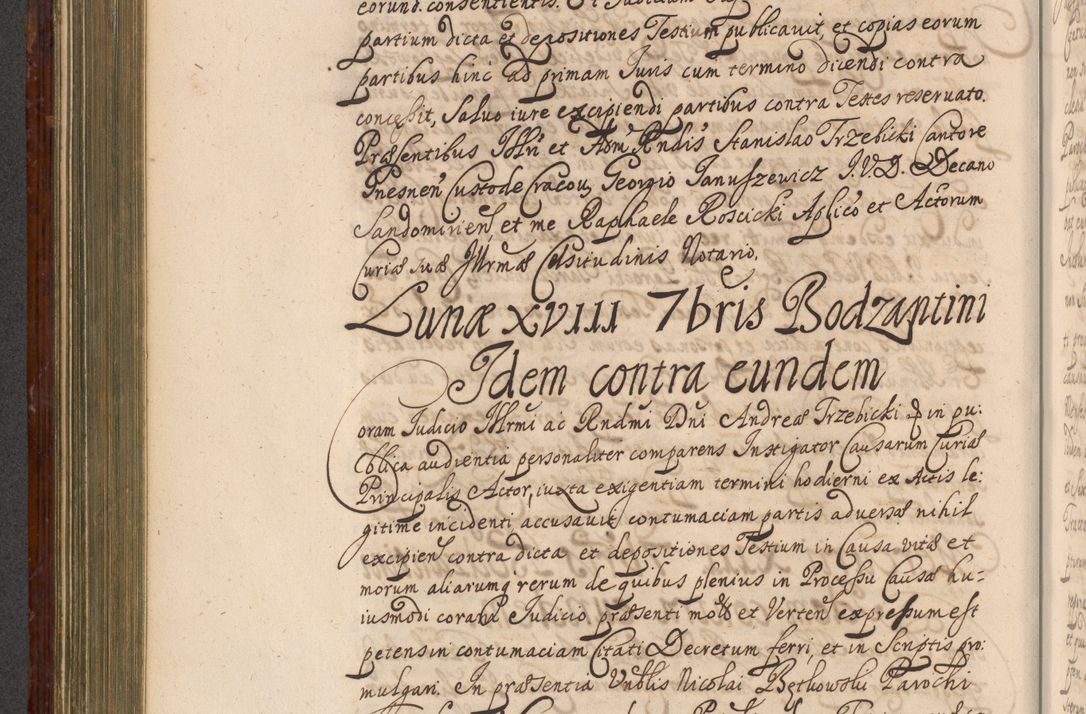 eorund. consentientis. Et Iudicium
partium dicta et depositiones Testium publicavit, et copias eorum
partibus hinc ad primam Iuris cum termino dicendi contra
concessit, Salvo iure excipiendi partibus contra Testes reservato.
Præsentibus Illri et Adm Rndis Stanislao Trzebicki Cantore
Gnesnen Custode Cracov, Georgio Ianuszewicz I.V.D. Decano
Sandomirien et me Raphaele Roscicki Aplico et Actorum
Curiæ suæ Illrmæ Celsitudinis Notario.
Lunæ XVIII 7bris Bodzantini
Idem contra eundem
Coram Iudicio Illrmi ac Rndmi Dni Andreæ Trzebicki in pu:
blica audientia personaliter comparens Instigator Causarum Curiæ
Principalis Actor, iuxta exigentiam termini hodierni ex Actis le:
gitime incidenti accusavit contumaciam partis adversæ nihil
excipien contra dicta et depositiones Testium in Causa vitæ et
morum aliarumq rerum de quibus plenius in Processu Causæ hu-
iusmodi coram Iudicio præsenti mot et Verten expressum est
petens in contumaciam Citati Decretum ferri, et in Scriptis pro:
mulgari. In præsentia Vnblis Nicolai Bętkowski Parochi